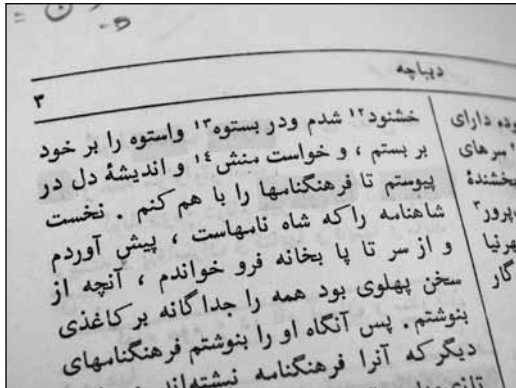 دیباچه
۳
خشنود۱۲ شدم ودر بستوه۱۳ واستوه را بر خود
بر بستم ، و خواست منش۱۴ و اندیشهٔ دل در
پیوستم تا فرهنگنامها را با هم کنم . نخست
شاهنامه راکه شاه نامهاست ، پیش آوردم
و از سر تا پا بخانه فرو خواندم ، آنچه از
سخن پهلوی بود همه را جداگانه بر کاغذی
بنوشتم . پس آنگاه او را بنوشتم فرهنگنامهای
دیگر که آنرا فرهنگنامه نبشته‌اند
وده دارای
سرهای
بخشندهٔ
پرور۳
هرنیا
گار